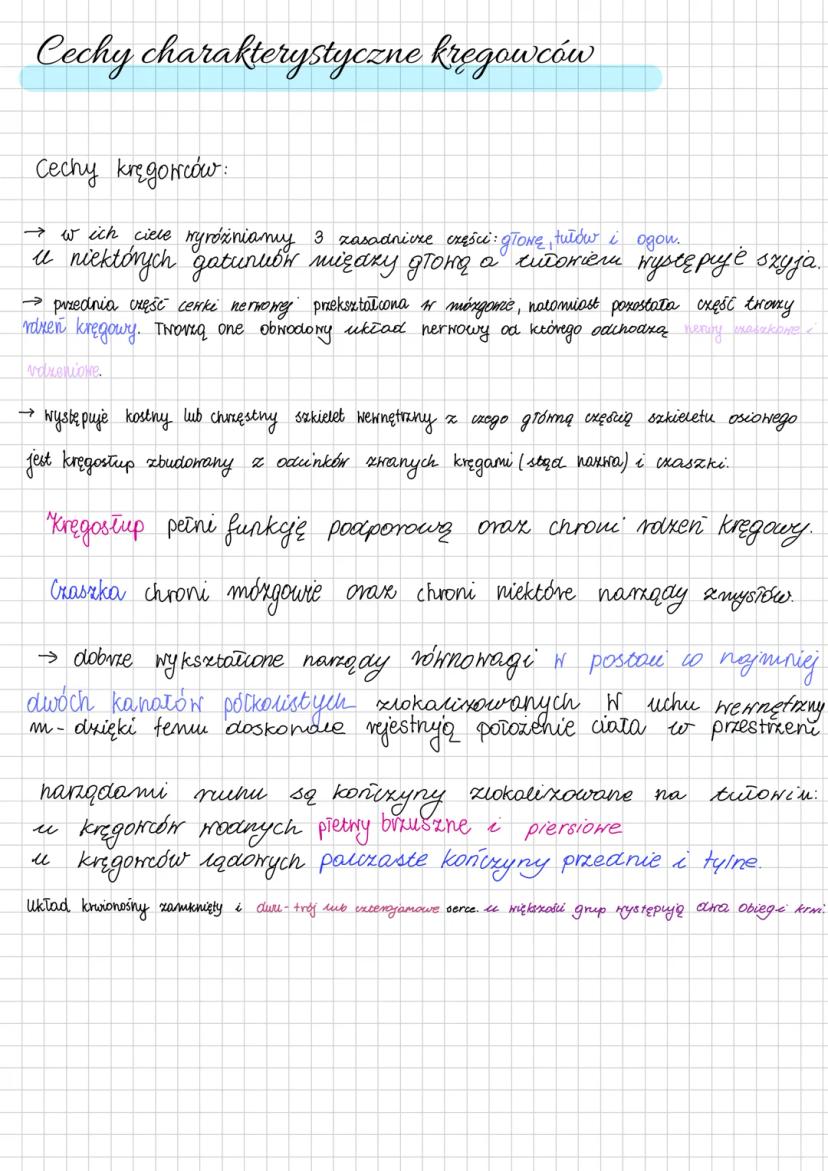 Cechy charakterystyczne kręgowców
Cechy kręgowców:
→ w ich ciele wyróżniamy 3 zasadnicze części: głowę, tułów i ogon.
U niektórych gatunków między głową a tułowiem występuje szyja.
→ przednia część cewki nerwowej przekształcona w mózgowie, natomiast pozostała część tworzy
rdzeń kręgowy. Tworzą one obwodowy układ nerwowy od którego odchodzą nerwy czaszkowe i
rdzeniowe.
→ występuje kostny lub chrzęstny szkielet wewnętrzny z czego główną częścią szkieletu osiowego
jest kręgosłup zbudowany z odcinków zwanych kręgami (stąd nazwa) i czaszki.
Kręgosłup pełni funkcję podporową oraz chroni rdzeń kręgowy.
Czaszka chroni mózgowie oraz chroni niektóre narządy zmysłów.
→ dobrze wykształcone narządy równowagi w postaci co najmniej
dwóch kanałów półkolistych zlokalizowanych w uchu wewnętrzny
m - dzięki temu doskonale rejestrują położenie ciała w przestrzeni
narządami ruchu są kończyny zlokalizowane na tułowiu:
u kręgowców wodnych płetwy brzuszne i piersiowe
u kręgowców lądowych palczaste kończyny przednie i tylne.
Układ krwionośny zamknięty i dwu-trój lub czterojamowe serce. u większości grup występują dwa obiegi krwi.